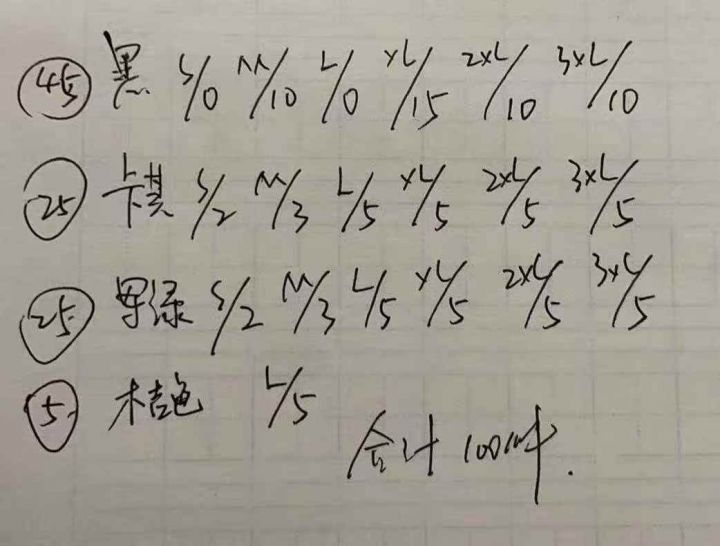 45 黑 S/0 M/10 L/0 XL/15 2XL/10 3XL/10
25 卡其 S/2 M/3 L/5 XL/5 2XL/5 3XL/5
25 军绿 S/2 M/3 L/5 XL/5 2XL/5 3XL/5
5 桔色 L/5
合计100件.